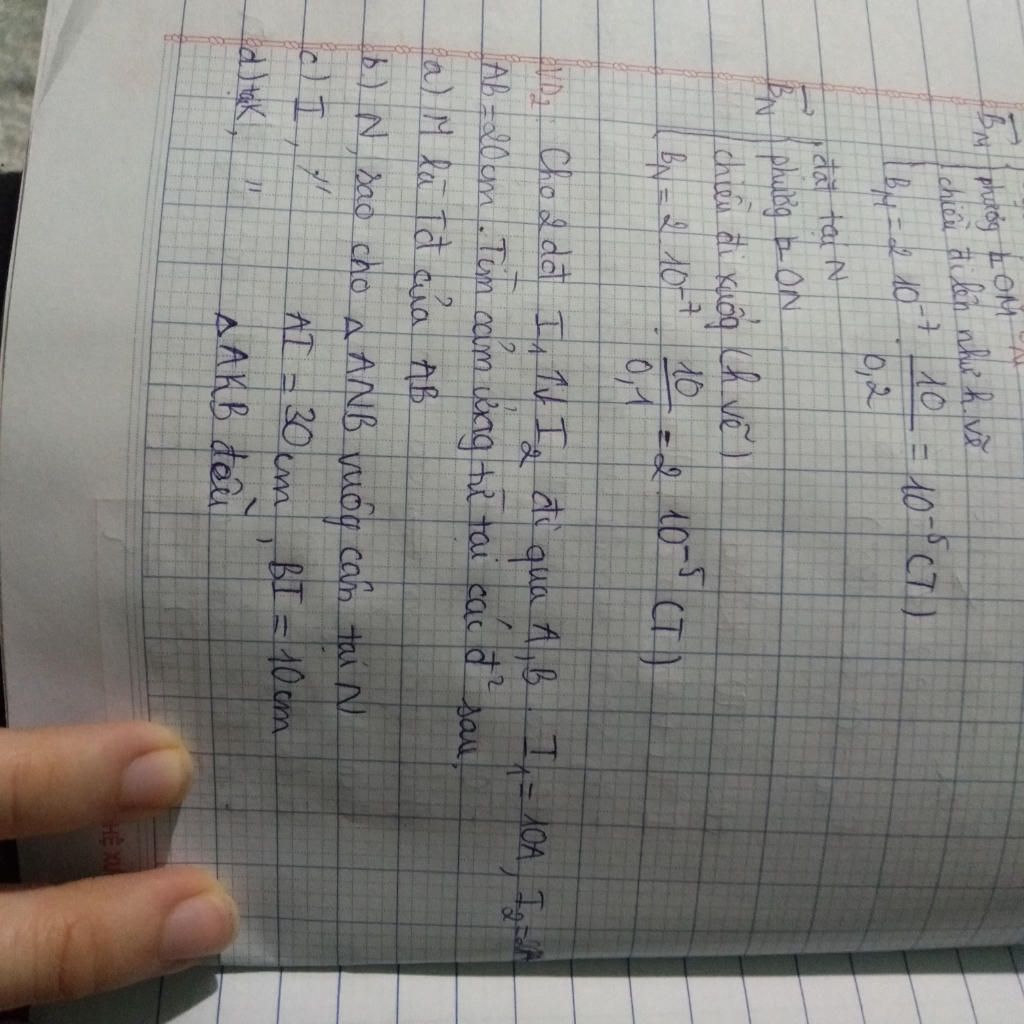 B⃗M { phương ⊥ OM
chiều đi lên như h.vẽ
BM = 2 10⁻⁷ . 10/0,2 = 10⁻⁵ (T)
đặt tại N
B⃗N phương ⊥ ON
chiều đi xuống (h vẽ)
BN = 2 10⁻⁷ . 10/0,1 = 2 10⁻⁵ (T)
VD2: Cho 2 dđ I1 ↑↓ I2 đi qua A, B. I1 = 10A, I2 =
AB = 20cm. Tìm cảm ứng từ tại các đ² sau,
a) M là Tđ của AB
b) N, sao cho △ANB vuông cân tại N
c) I, " AI = 30cm, BI = 10cm
d) tại K, " △AKB đều
HỆ